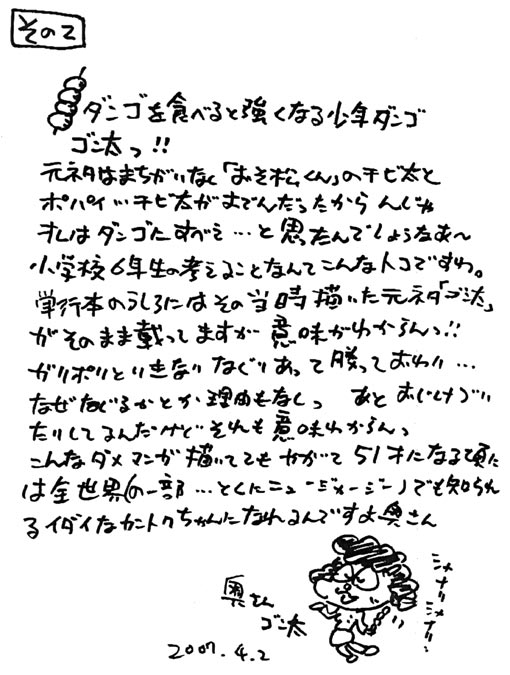 その2
ダンゴを食べると強くなる少年ダンゴ
ゴン太っ!!
元ネタはまちがいなく「おそ松くん」のチビ太と
ポパイ…チビ太がおでんだったから んじゃ
オレはダンゴにすべえ…と思たんでしょうなあ〜
小学校6年生の考えることなんてこんなトコですわ。
単行本のうしろにはその当時描いた元ネタ「ゴン太」
がそのまま載ってますが 意味がわからんっ!!
ガリポリといきなり なぐりあって勝っておわり…
なぜなぐるかとか理由もなしっ あと おじけづい
たりしてるんだけど それも意味わからんっ
こんなダメマンガ描いてても やがて51才になる頃に
は全世界(の一部…とくにニュージャージー)でも知られ
るイダイなカントクちゃんになれるんですよ奥さん
シャナリシャナリ
奥さん
ゴン太
2007.4.2